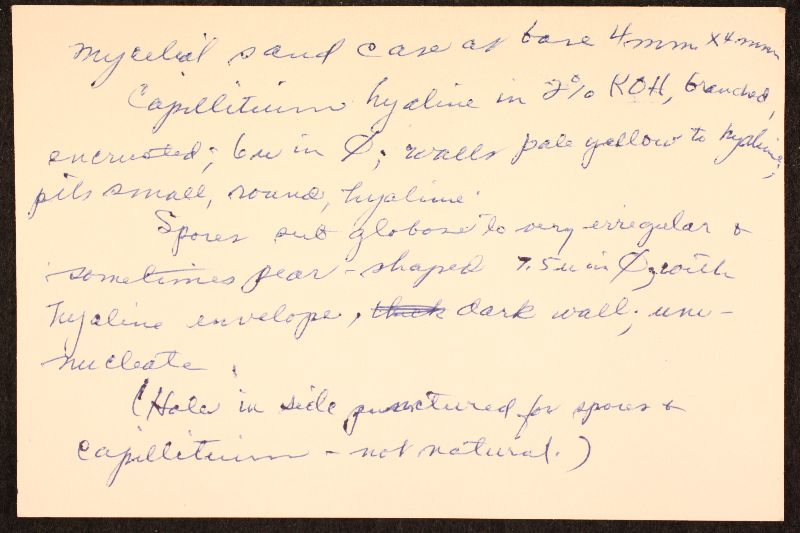 mycelial sand case at base 4mm x 4mm
Capillitium hyaline in 2% KOH, branched,
encrusted; 6u in Ø; walls pale yellow to hyaline;
pits small, round, hyaline.
Spores sub globose to very irregular &
sometimes pear-shaped 7.5u in Ø, with
hyaline envelope, thick dark wall; uni-
nucleate.
(Hole in side punctured for spores &
capillitium - not natural.)